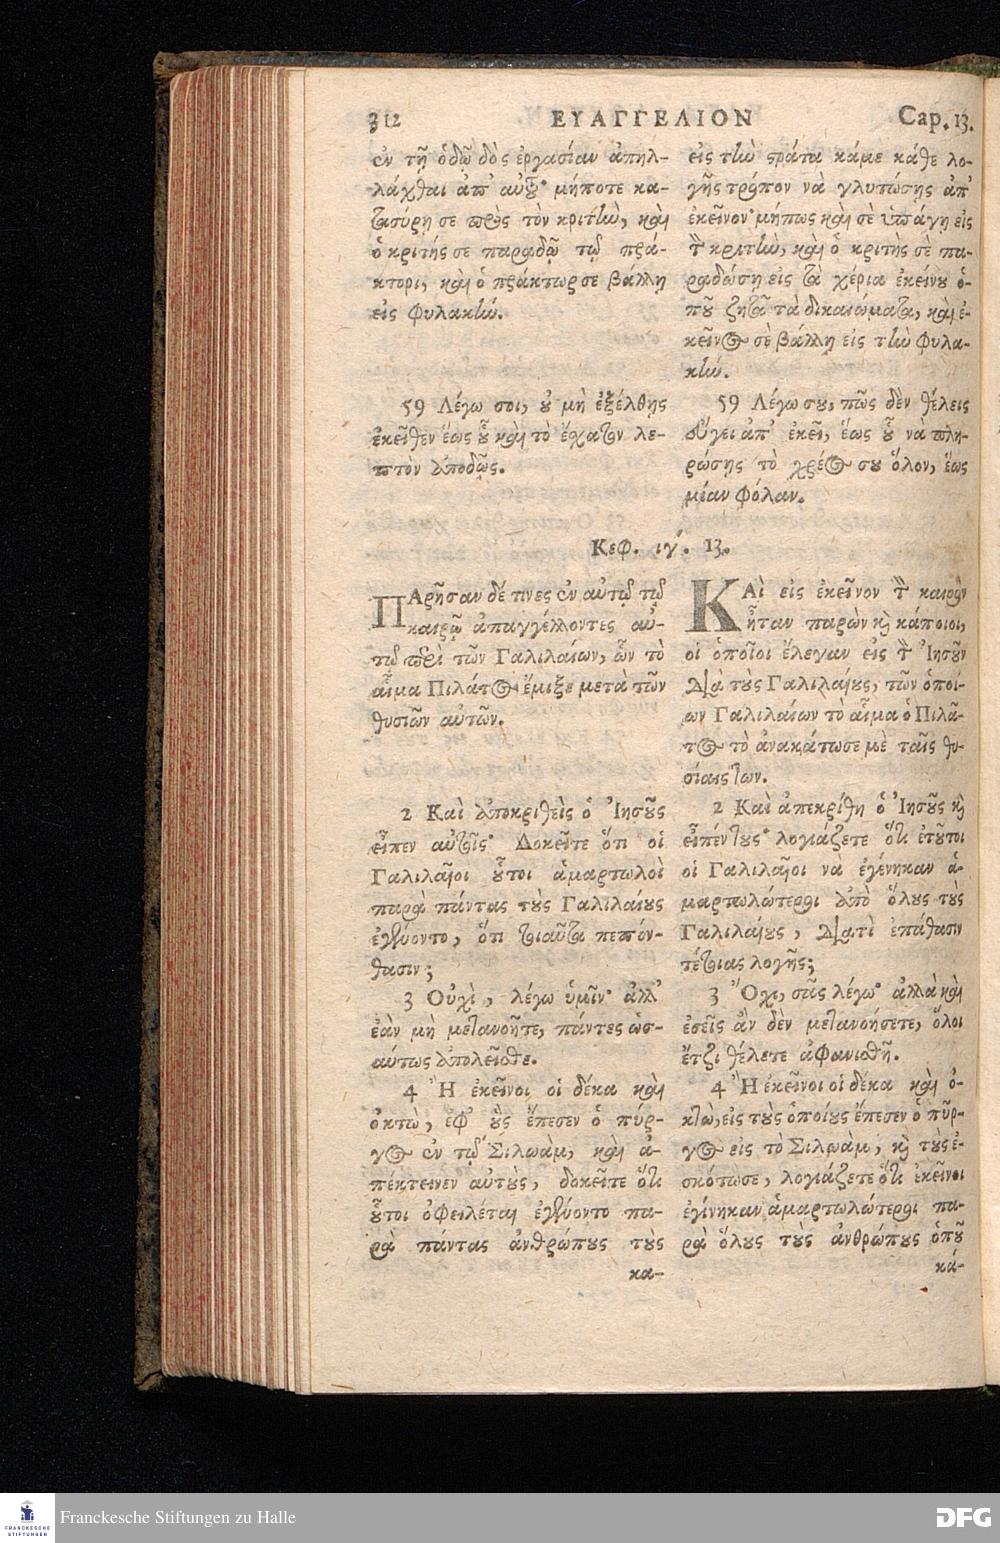 312 ΕΥΑΓΓΕΛΙΟΝ Cap. 13.
ἐν τῇ ὁδῷ δὸς ἐργασίαν ἀπηλ-
λάχθαι ἀπ' αὐτοῦ· μήποτε κα-
τασύρῃ σε πρὸς τὸν κριτὴν, καὶ
ὁ κριτής σε παραδῷ τῷ πρά-
κτορι, καὶ ὁ πράκτωρ σε βάλλῃ
εἰς φυλακήν.
59 Λέγω σοι, οὐ μὴ ἐξέλθῃς
ἐκεῖθεν ἕως οὗ καὶ τὸ ἔσχατον λε-
πτὸν ἀποδῷς.
εἰς τὴν στράτα κάμε κάθε λο-
γῆς τρόπον νὰ γλυτώσῃς ἀπ'
ἐκεῖνον· μήπως καὶ σὲ ὑπάγῃ εἰς
τὸν κριτὴν, καὶ ὁ κριτὴς σὲ πα-
ραδώσῃ εἰς τὰ χέρια ἐκείνου ὁ-
ποῦ ζητᾶ τὰ δικαιώματα, καὶ ἐ-
κεῖνος σὲ βάλλῃ εἰς τὴν φυλα-
κήν.
59 Λέγω σου, πῶς δὲν θέλεις
εὔγει ἀπ' ἐκεῖ, ἕως οὗ νὰ πλη-
ρώσῃς τὸ χρέος σου ὅλον, ἕως
μίαν φόλαν.
Κεφ. ιγ'. 13.
ΠΑρῆσαν δέ τινες ἐν αὐτῷ τῷ
καιρῷ ἀπαγγέλλοντες αὐ-
τῷ περὶ τῶν Γαλιλαίων, ὧν τὸ
αἷμα Πιλάτος ἔμιξε μετὰ τῶν
θυσιῶν αὐτῶν.
2 Καὶ ἀποκριθεὶς ὁ Ἰησοῦς
εἶπεν αὐτοῖς· Δοκεῖτε ὅτι οἱ
Γαλιλαῖοι οὗτοι ἁμαρτωλοὶ
παρὰ πάντας τοὺς Γαλιλαίους
ἐγένοντο, ὅτι τοιαῦτα πεπόν-
θασιν;
3 Οὐχὶ, λέγω ὑμῖν· ἀλλ'
ἐὰν μὴ μετανοῆτε, πάντες ὡσ-
αύτως ἀπολεῖσθε.
4 Ἢ ἐκεῖνοι οἱ δέκα καὶ
ὀκτὼ, ἐφ' οὓς ἔπεσεν ὁ πύρ-
γος ἐν τῷ Σιλωὰμ, καὶ ἀ-
πέκτεινεν αὐτοὺς, δοκεῖτε ὅτι
οὗτοι ὀφειλέται ἐγένοντο πα-
ρὰ πάντας ἀνθρώπους τοὺς
κα-
ΚΑὶ εἰς ἐκεῖνον τὸν καιρὸν
ἦταν παρὼν καὶ κάποιοι,
οἱ ὁποῖοι ἔλεγαν εἰς τὸν Ἰησοῦν
διὰ τοὺς Γαλιλαίους, τῶν ὁποί-
ων Γαλιλαίων τὸ αἷμα ὁ Πιλᾶ-
τος τὸ ἀνακάτωσε μὲ ταῖς θυ-
σίαις των.
2 Καὶ ἀπεκρίθη ὁ Ἰησοῦς καὶ
εἶπέν τους· λογιάζετε ὅτι ἐτοῦτοι
οἱ Γαλιλαῖοι νὰ ἐγένηκαν ἁ-
μαρτωλώτεροι ἀπὸ ὅλους τοὺς
Γαλιλαίους, διατὶ ἐπάθασιν
τέτοιας λογῆς;
3 Ὄχι, σᾶς λέγω· ἀλλὰ καὶ
ἐσεῖς ἂν δὲν μετανοήσετε, ὅλοι
ἔτζι θέλετε ἀφανισθῆ.
4 Ἢ ἐκεῖνοι οἱ δέκα καὶ ὀ-
κτὼ, εἰς τοὺς ὁποίους ἔπεσεν ὁ πῦρ-
γος εἰς τὸ Σιλωὰμ, καὶ τοὺς ἐ-
σκότωσε, λογιάζετε ὅτι ἐκεῖνοι
ἐγίνηκαν ἁμαρτωλώτεροι πα-
ρὰ ὅλους τοὺς ἀνθρώπους ὁποῦ
κά-
FRANCKESCHE
STIFTUNGEN
Franckesche Stiftungen zu Halle
DFG